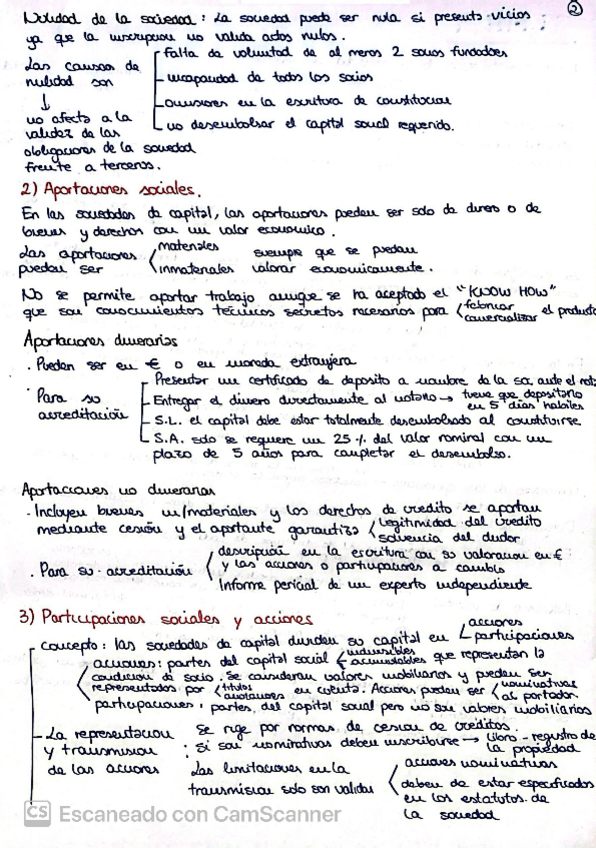 2
Nulidad de la sociedad: La sociedad puede ser nula si presenta vicios
ya que la inscripcion no valida actos nulos.
Las causas de nulidad son
falta de voluntad de al menos 2 socios fundadores
incapacidad de todos los socios
omisiones en la escritura de constitucion
no desembolsar el capital social requerido.
↓
no afecta a la
validez de las
obligaciones de la sociedad
frente a terceros.
2) Aportaciones sociales.
En las sociedades de capital, las aportaciones pueden ser solo de dinero o de
bienes y derechos con un valor economico.
Las aportaciones pueden ser
materiales
inmateriales
siempre que se puedan
valorar economicamente.
No se permite aportar trabajo aunque se ha aceptado el "KNOW HOW"
que son conocimientos técnicos secretos necesarios para
fabricar
comercializar
el producto
Aportaciones dinerarias
· Pueden ser en € o en moneda extranjera
· Para su acreditación
Presentar un certificado de deposito a nombre de la soc. ante el not
Entregar el dinero directamente al notario → tiene que depositarlo
en 5 días hábiles
S.L. el capital debe estar totalmente desembolsado al constituirse
S.A. solo se requiere un 25% del valor nominal con un
plazo de 5 años para completar el desembolso.
Aportaciones no dinerarias
· Incluyen bienes in/materiales y los derechos de credito se aportan
mediante cesión y el aportante garantiza
legitimidad del credito
solvencia del deudor
· Para su acreditación
descripción en la escritura con su valoracion en €
y las acciones o participaciones a cambio
Informe pericial de un experto independiente
3) Participaciones sociales y acciones
Concepto: las sociedades de capital dividen su capital en
acciones
participaciones
acciones: partes del capital social
indivisibles
acumulables
que representan la
condicion de socio. Se consideran valores mobiliarios y pueden ser
representados por
títulos
anotaciones
en cuenta. Acciones pueden ser
nominativas
al portador.
participaciones: partes del capital social pero no son valores mobiliarios
La representacion
y transmision
de las acciones
:
Se rige por normas de cesion de creditos.
si son nominativas deben inscribirse → libro-registro de
la propiedad
Las limitaciones en la
transmision solo son validas
acciones nominativas
deben de estar especificadas
en los estatutos de
la sociedad
CS Escaneado con CamScanner